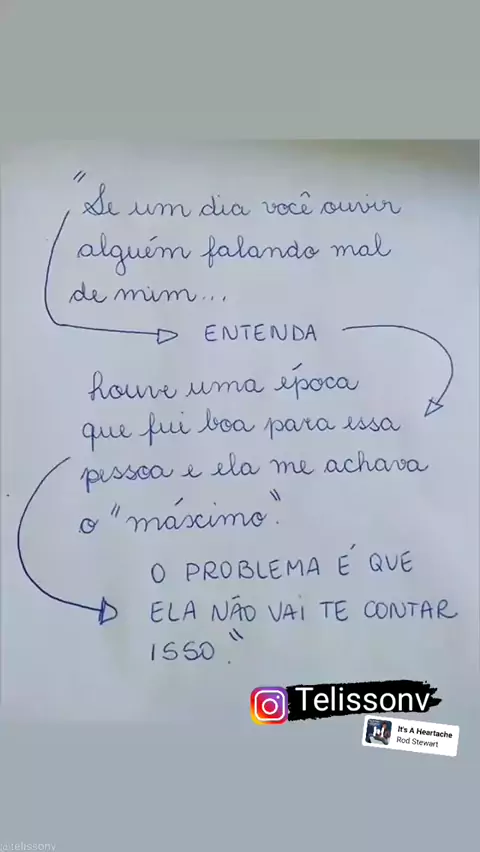 "Se um dia você ouvir
alguém falando mal
de mim...
ENTENDA
houve uma época
que fui boa para essa
pessoa e ela me achava
o "máximo".
O PROBLEMA É QUE
ELA NÃO VAI TE CONTAR
ISSO."
Telissonv
It's A Heartache
Rod Stewart
@telissonv